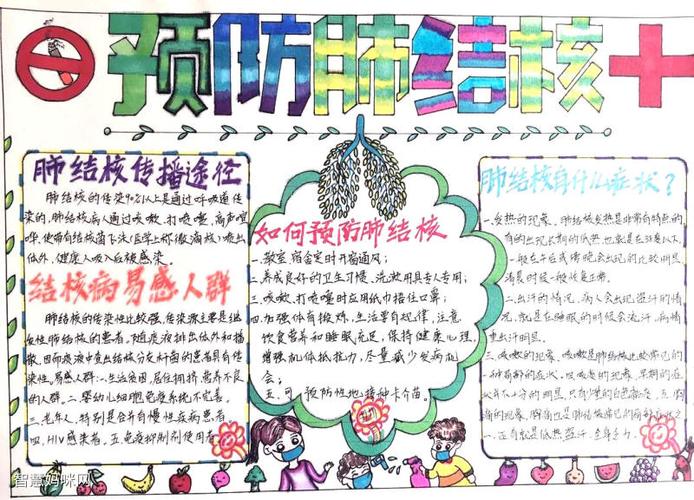 预防肺结核
肺结核传播途径
肺结核的传染90%以上是通过呼吸道传
染的,肺结核病人通过咳嗽、打喷嚏、高声喧
哗、使带有结核菌飞沫(医学上称微滴核)喷出
体外,健康人吸入后被感染。
结核病易感人群
肺结核的传染性比较强,传染源主要是继
发性肺结核的患者,随痰液排出体外和播
散,因而痰液中查出结核分支杆菌的患者具有传
染性。易感人群:一、生活贫困、居住拥挤、营养不良
的人群。二、婴幼儿细胞免疫系统不完善。
三、老年人,特别是合并有慢性疾病患者
四、HIV感染者。五、免疫抑制剂使用者
如何预防肺结核
一、教室、宿舍定时开窗通风;
二、养成良好的卫生习惯、洗漱用具专人专用;
三、咳嗽、打喷嚏时应用纸巾捂住口鼻;
四、加强体育锻炼,生活要有规律,注意
饮食营养和睡眠充足,保持健康心理,
增强机体抵抗力,尽量减少发病机
会;
五、可预防性地接种卡介苗。
肺结核有什么症状?
一、发热的现象。肺结核发热是非常有特点的
一般在午后或傍晚会出现的比较明显
清晨时候一般恢复正常。
二、出汗的情况,病人会出现盗汗的情
况,就是在睡眠的时候会流汗,病情
重出汗明显。
三、咳嗽的现象,咳嗽是肺结核比较常见的
一种
智慧妈咪网